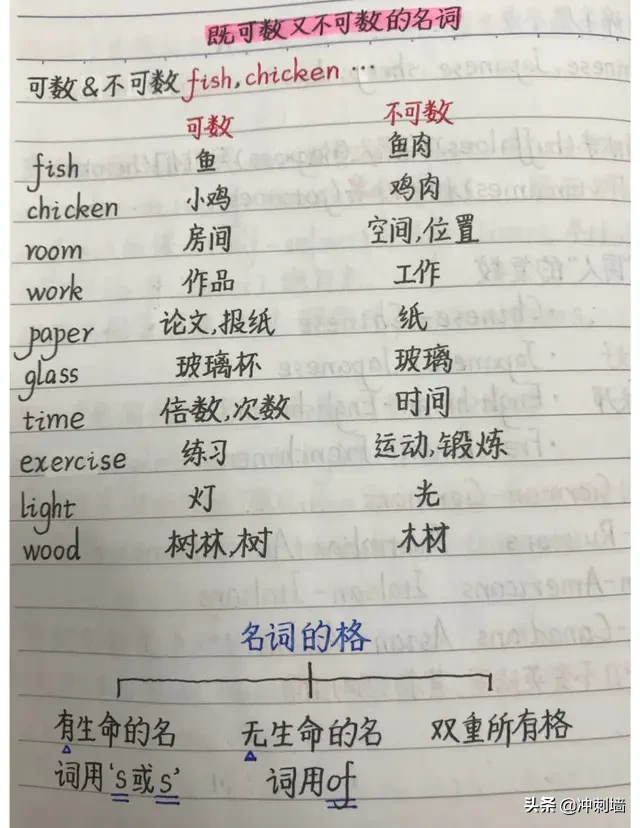 既可数又不可数的名词
可数&不可数 fish, chicken …
可数 不可数
fish 鱼 鱼肉
chicken 小鸡 鸡肉
room 房间 空间,位置
work 作品 工作
paper 论文,报纸 纸
glass 玻璃杯 玻璃
time 倍数,次数 时间
exercise 练习 运动,锻炼
light 灯 光
wood 树林,树 木材
名词的格
有生命的名 无生命的名 双重所有格
词用's或s' 词用of
头条 @冲刺墙